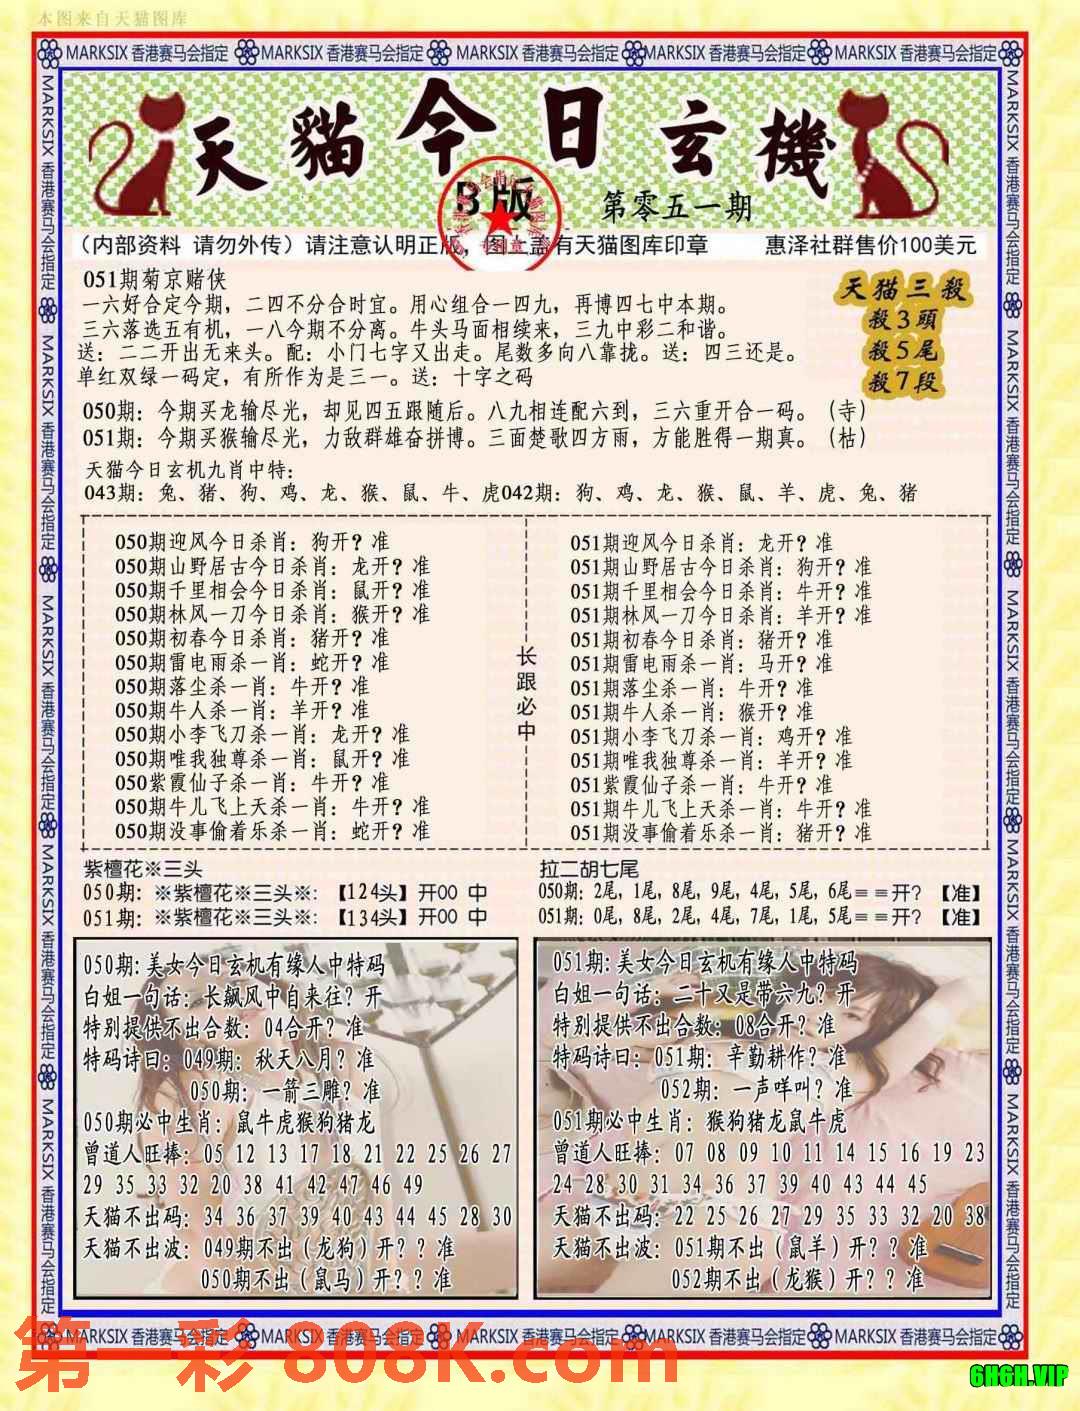 本图来自天猫图库
MARKSIX 香港赛马会指定 MARKSIX 香港赛马会指定 MARKSIX 香港赛马会指定 MARKSIX 香港赛马会指定 MARKSIX 香港赛马会指定
天貓今日玄機
B版
第零五一期
(内部资料 请勿外传)请注意认明正版,图上盖有天猫图库印章 惠泽社群售价100美元
051期菊京赌侠
一六好合定今期,二四不分合时宜。用心组合一四九,再博四七中本期。
三六落选五有机,一八今期不分离。牛头马面相续来,三九中彩二和谐。
送:二二开出无来头。配:小门七字又出走。尾数多向八靠拢。送:四三还是。
单红双绿一码定,有所作为是三一。送:十字之码
天猫三殺
殺3頭
殺5尾
殺7段
050期:今期买龙输尽光,却见四五跟随后。八九相连配六到,三六重开合一码。(寺)
051期:今期买猴输尽光,力敌群雄奋拼博。三面楚歌四方雨,方能胜得一期真。(枯)
天猫今日玄机九肖中特:
043期:兔、猪、狗、鸡、龙、猴、鼠、牛、虎042期:狗、鸡、龙、猴、鼠、羊、虎、兔、猪
050期迎风今日杀肖:狗开?准
050期山野居古今日杀肖:龙开?准
050期千里相会今日杀肖:鼠开?准
050期林风一刀今日杀肖:猴开?准
050期初春今日杀肖:猪开?准
050期雷电雨杀一肖:蛇开?准
050期落尘杀一肖:牛开?准
050期牛人杀一肖:羊开?准
050期小李飞刀杀一肖:龙开?准
050期唯我独尊杀一肖:鼠开?准
050紫霞仙子杀一肖:牛开?准
050期牛儿飞上天杀一肖:牛开?准
050期没事偷着乐杀一肖:蛇开?准
长跟必中
051期迎风今日杀肖:龙开?准
051期山野居古今日杀肖:狗开?准
051期千里相会今日杀肖:牛开?准
051期林风一刀今日杀肖:羊开?准
051期初春今日杀肖:猪开?准
051期雷电雨杀一肖:马开?准
051期落尘杀一肖:牛开?准
051期牛人杀一肖:猴开?准
051期小李飞刀杀一肖:鸡开?准
051期唯我独尊杀一肖:羊开?准
051紫霞仙子杀一肖:牛开?准
051期牛儿飞上天杀一肖:牛开?准
051期没事偷着乐杀一肖:猪开?准
紫檀花※三头
050期:※紫檀花※三头※:【124头】开00 中
051期:※紫檀花※三头※:【134头】开00 中
拉二胡七尾
050期:2尾,1尾,8尾,9尾,4尾,5尾,6尾==开?【准】
051期:0尾,8尾,2尾,4尾,7尾,1尾,5尾==开?【准】
050期:美女今日玄机有缘人中特码
白姐一句话:长飙风中自来往?开
特别提供不出合数:04合开?准
特码诗曰:049期:秋天八月?准
050期:一箭三雕?准
050期必中生肖:鼠牛虎猴狗猪龙
曾道人旺捧:05 12 13 17 18 21 22 25 26 27
29 35 33 32 20 38 41 42 47 46 49
天猫不出码:34 36 37 39 40 43 44 45 28 30
天猫不出波:049期不出(龙狗)开??准
050期不出(鼠马)开??准
051期:美女今日玄机有缘人中特码
白姐一句话:二十又是带六九?开
特别提供不出合数:08合开?准
特码诗曰:051期:辛勤耕作?准
052期:一声咩叫?准
051期必中生肖:猴狗猪龙鼠牛虎
曾道人旺捧:07 08 09 10 11 14 15 16 19 23
24 28 30 31 34 36 37 39 40 43 44 45
天猫不出码:22 25 26 27 29 35 33 32 20 38
天猫不出波:051期不出(鼠羊)开??准
052期不出(龙猴)开??准
MARKSIX 香港赛马会指定 MARKSIX 香港赛马会指定 MARKSIX 香港赛马会指定 MARKSIX 香港赛马会指定 MARKSIX 香港赛马会指定
第一彩 808K.com
6H6H.VIP